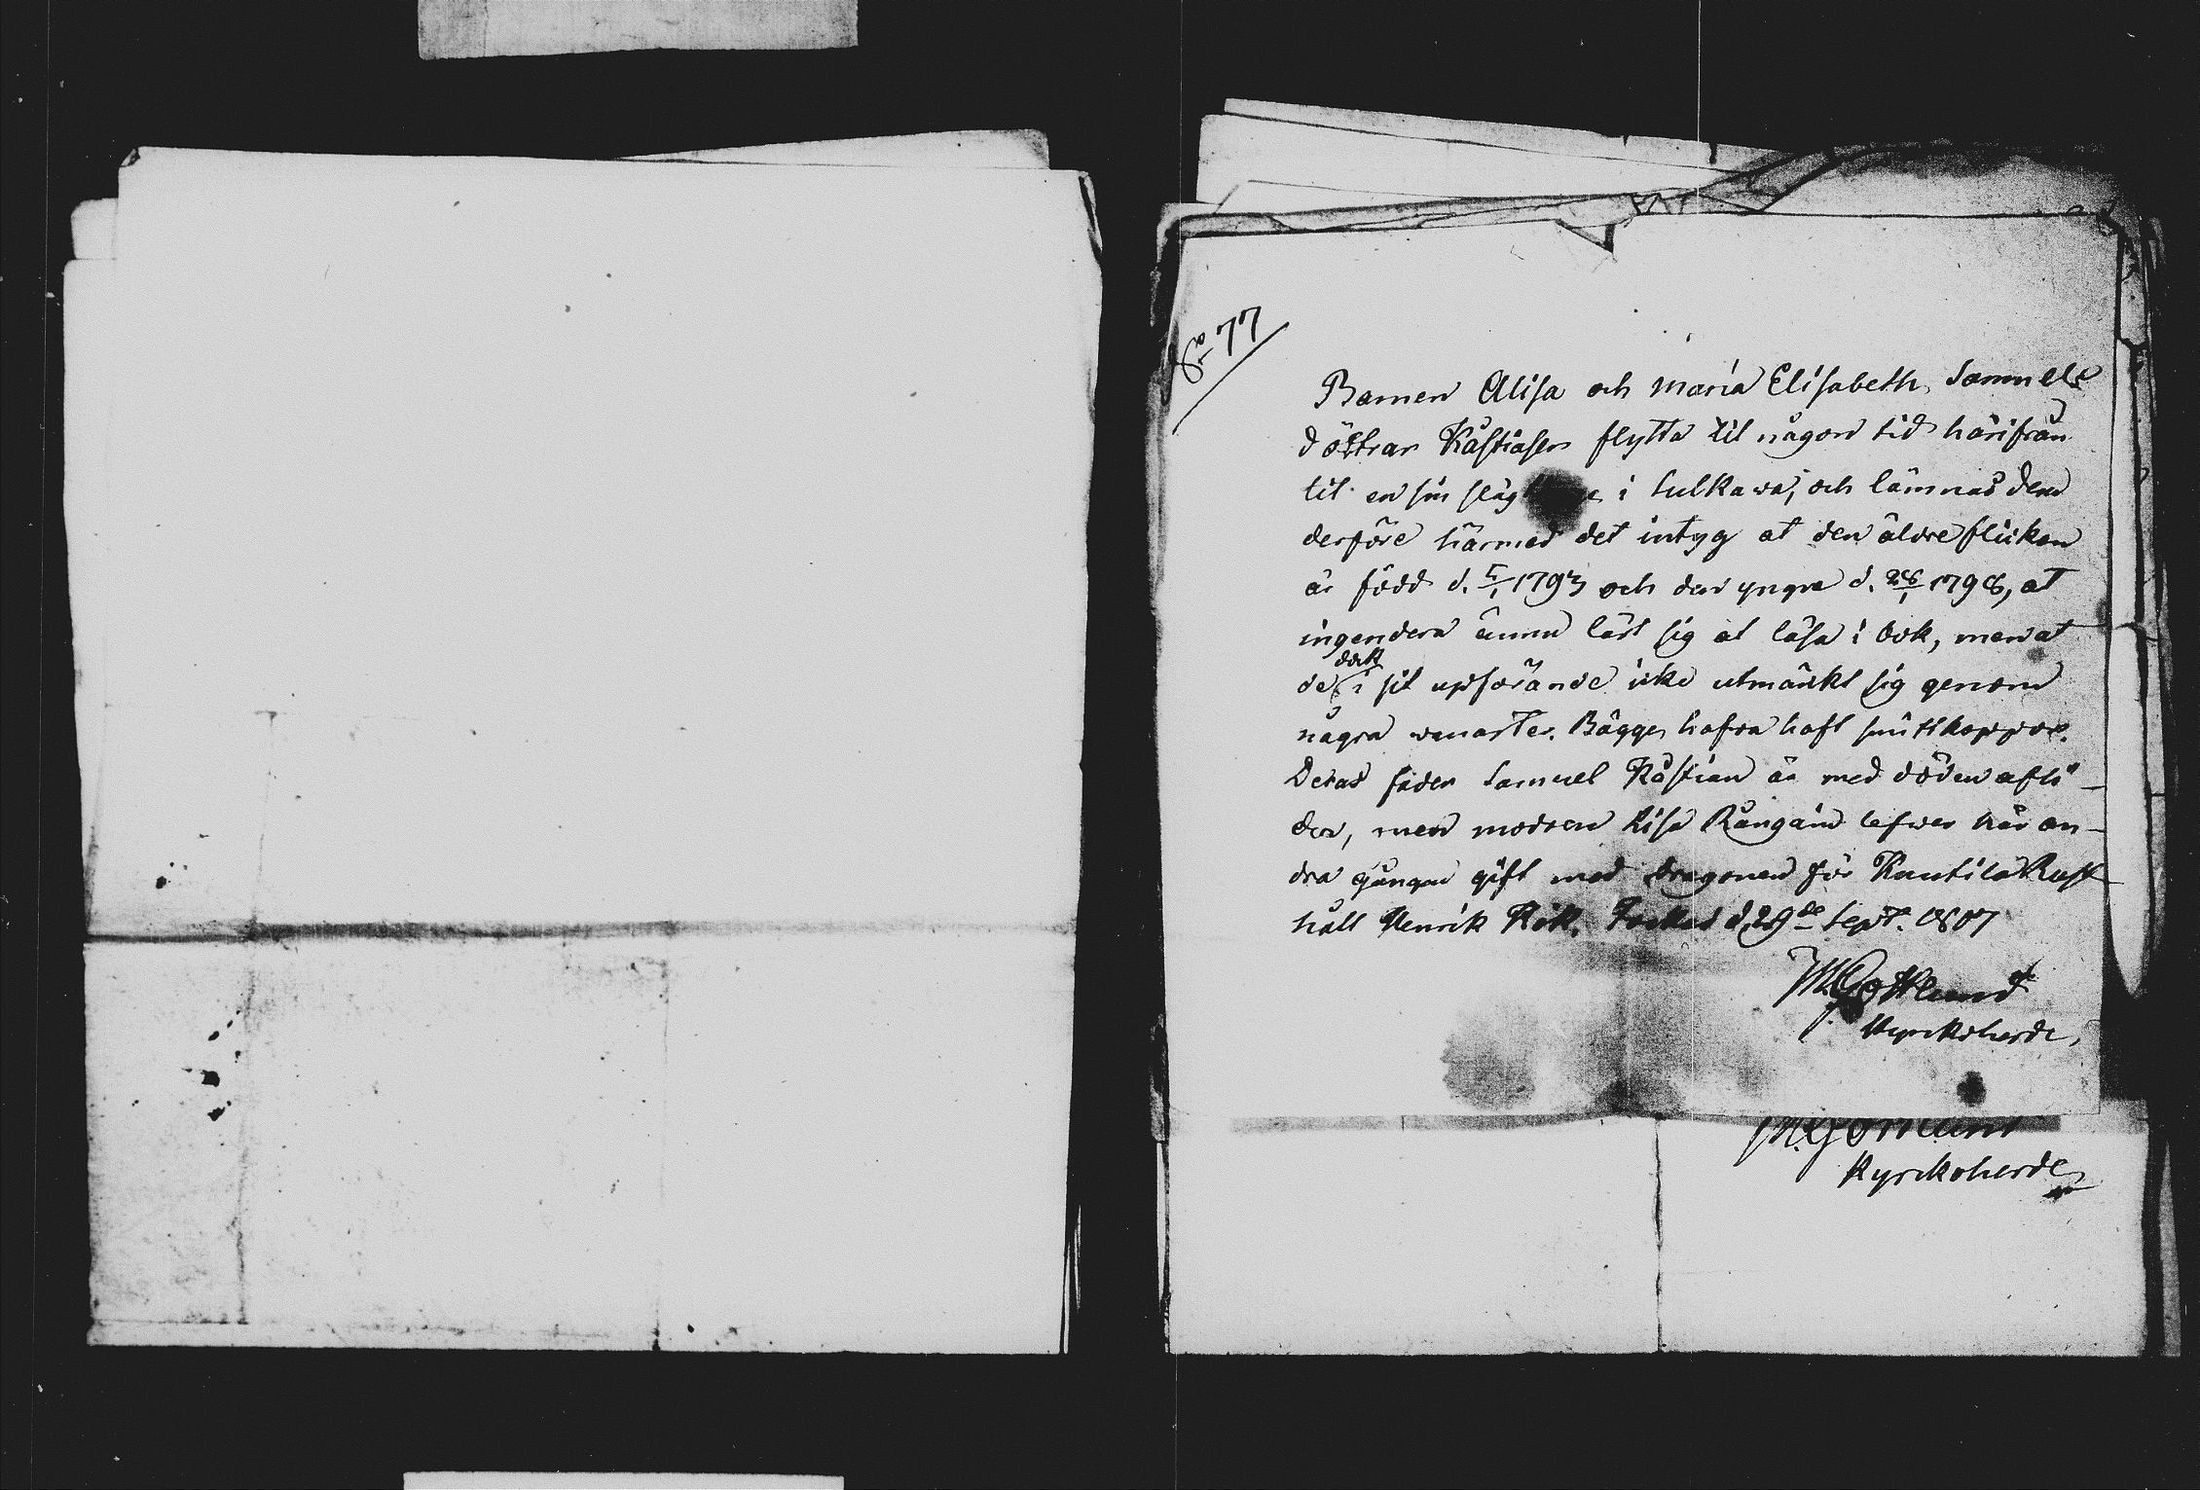 No 77
Barnen Alisa och Maria Elisabeth Samuels
döttrar Kåstiasen flytta til någon tid härifrån
til en sin släg i Sulkawa, och lämnas dem
derföre härmed det intyg at den äldre flickan
är född d. 5/1 1793 och den yngre d. 28/1 1798, at
ingendera ännu lärt sig at läsa i bok, men at
de dock i sit upförande icke utmärkt sig genom
några vanarter. Bägge hafva haft smittkoppor.
Deras fader Samuel Kåstian är med döden afli-
den, men modren Lisa Rångain lefwer här an-
dra gången gift med dragonen för Kautila Rust
håll Henrik Kok. Jockas d. 29de Sept. 1807
M Gottlund
Kyrkoherde.
M. Gottlund
Kyrkoherde